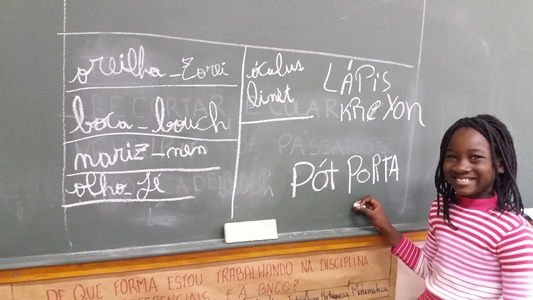 orelha - Zorei
boca - bouch
nariz - nen
olho jé
óculus
linèt
LÁPis
KRèYon
pót PORTA
DE QUE FORMA ESTOU TRABALHANDO NA DISCIPLINA
E A BNCC?
Portuguesa Matemática